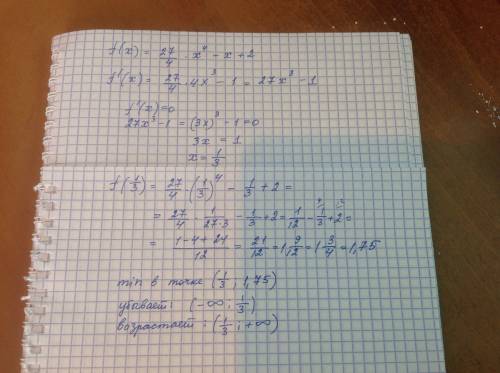 f(x) = 27/4 · x⁴ - x + 2
f'(x) = 27/4 · 4x³ - 1 = 27x³ - 1
f'(x)=0
27x³-1 = (3x)³ - 1 = 0
3x = 1
x = 1/3
f(1/3) = 27/4 · (1/3)⁴ - 1/3 + 2 =
= 27/4 · 1/27·3 - 1/3 + 2 = 1/12 - 1/3 + 2 =
= 1-4+24/12 = 21/12 = 1 9/12 = 1 3/4 = 1,75
min в точке (1/3 ; 1,75)
убывает: (-∞ ; 1/3)
возрастает: (1/3 ; +∞)